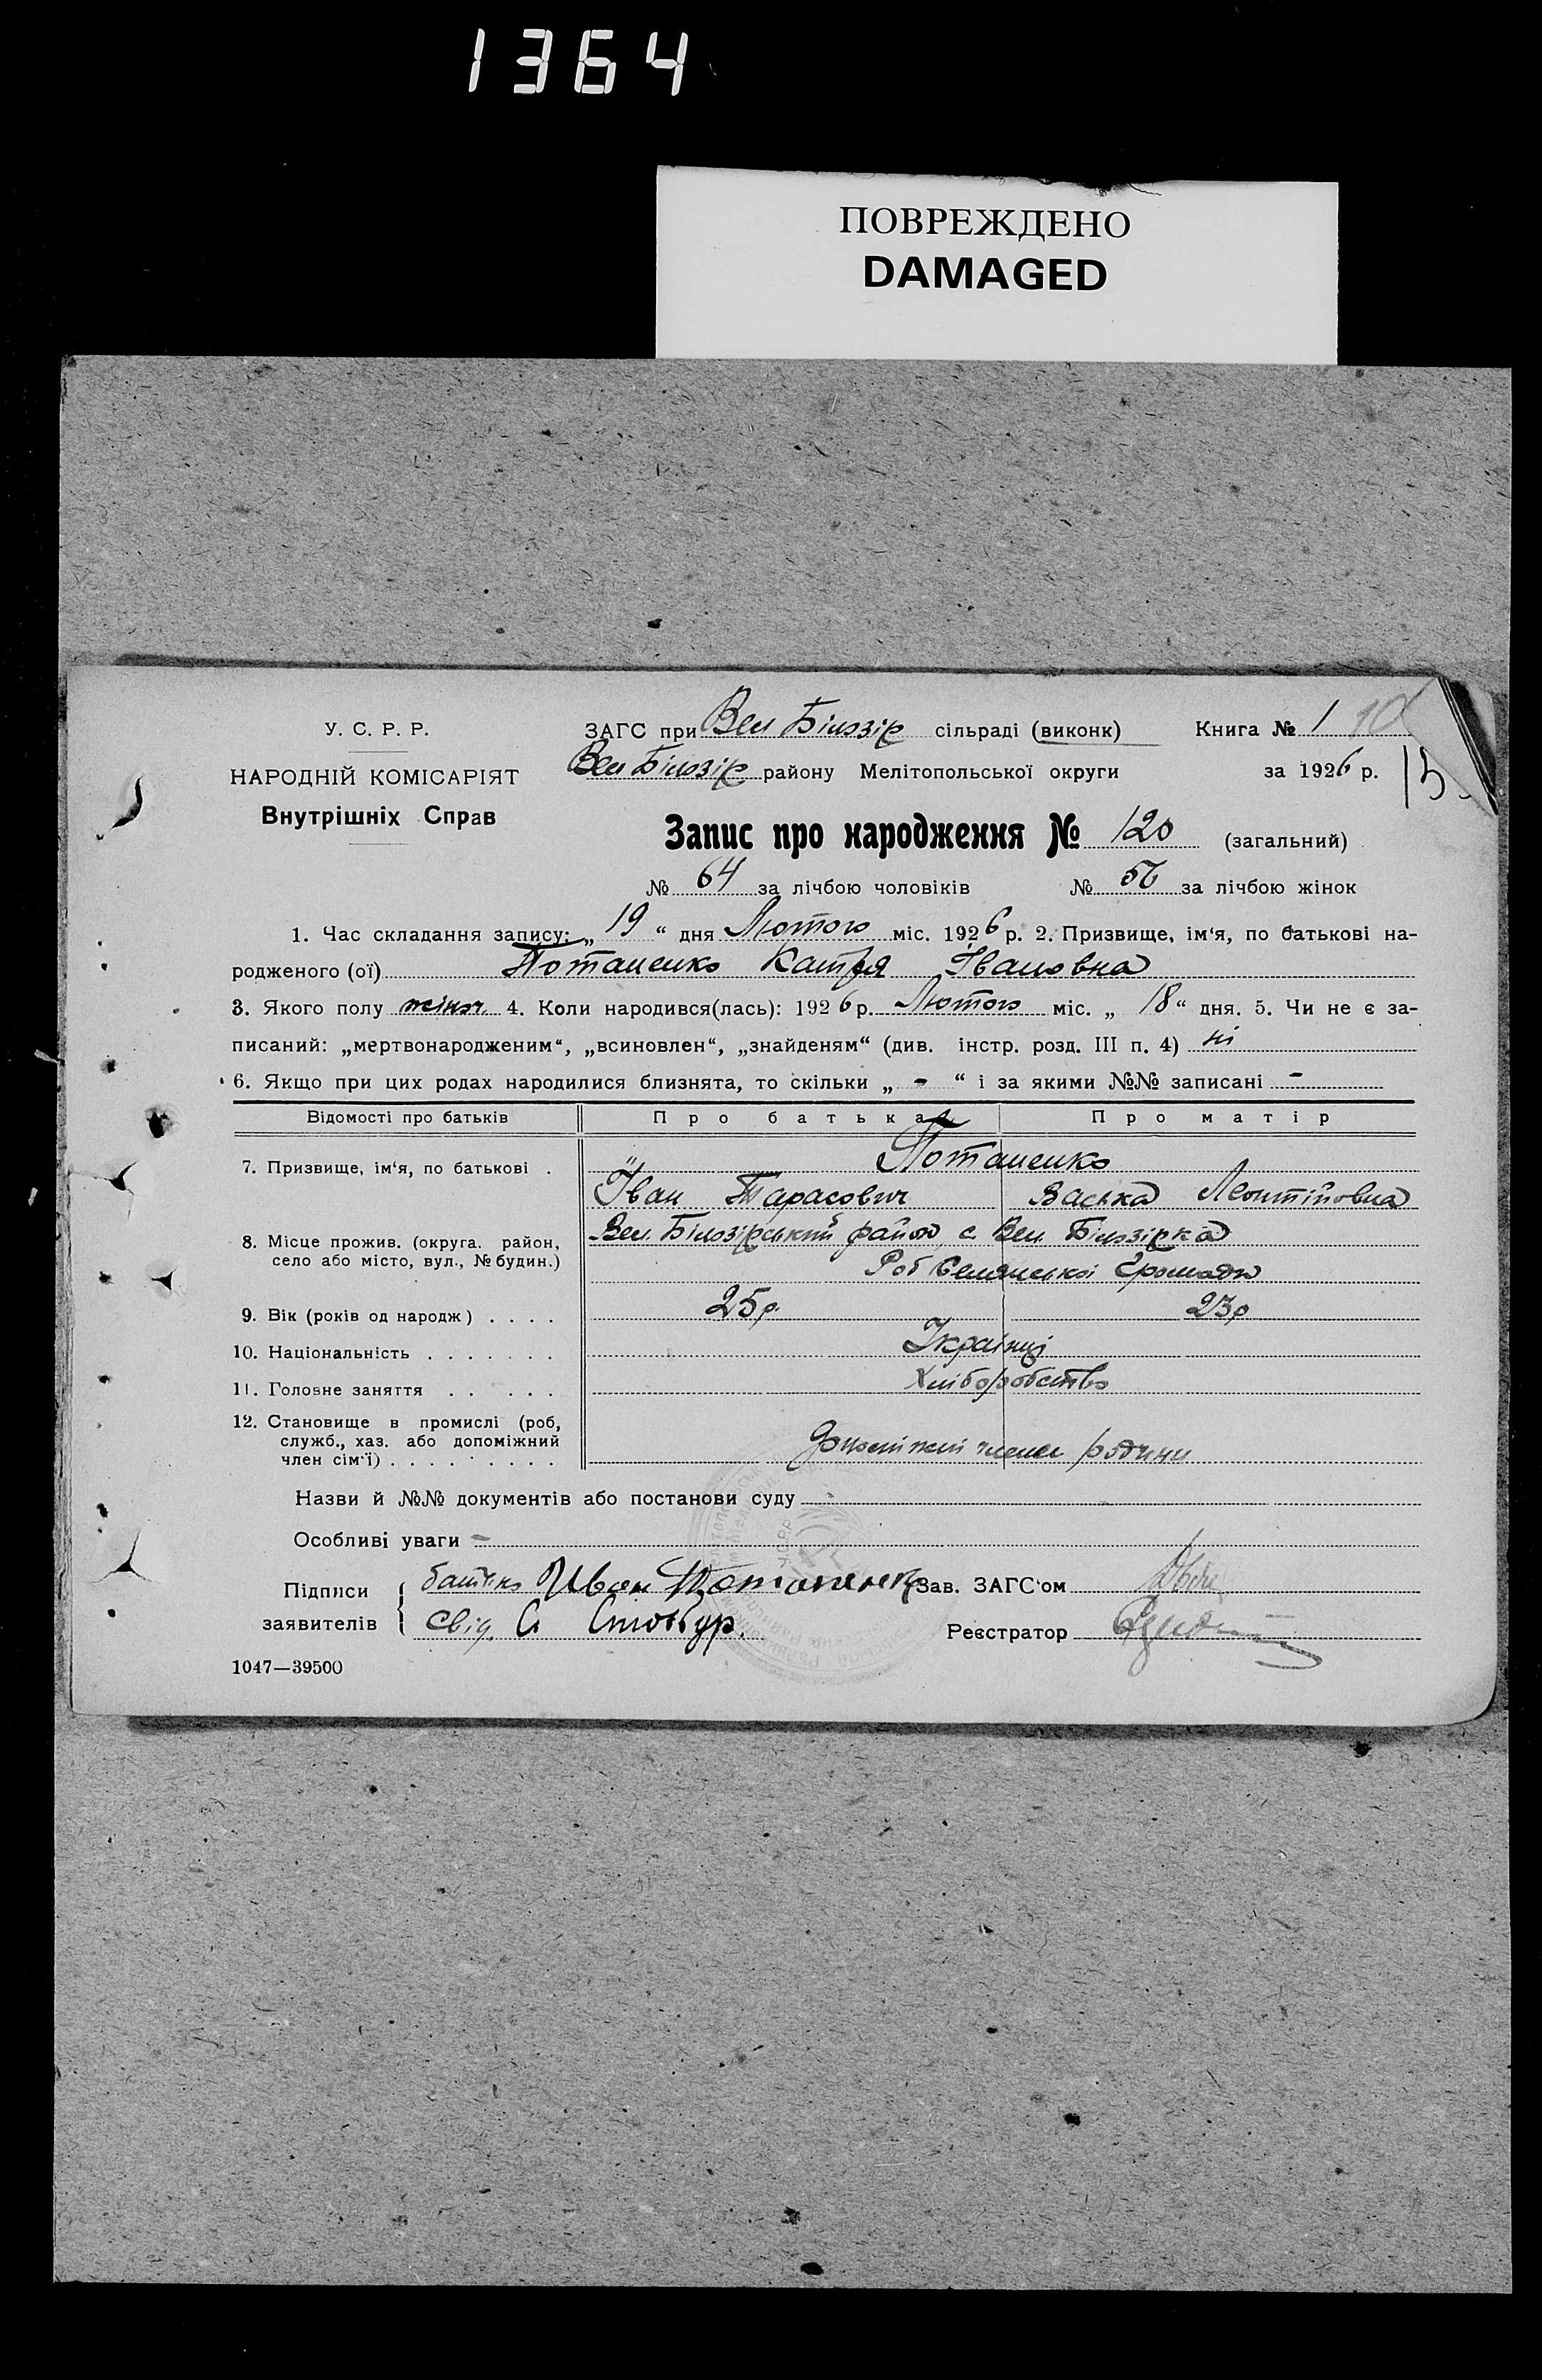 1364
ПОВРЕЖДЕНО
DAMAGED
У. С. Р. Р.
НАРОДНІЙ КОМІСАРІЯТ
Внутрішніх Справ
ЗАГС при Вел Білозір сільраді (виконк) Книга № 1 10
Вел Білозір району Мелітопольської округи за 1926 р.
Запис про народження № 120 (загальний)
№ 64 за лічбою чоловіків № 56 за лічбою жінок
1. Час складання запису: „ 19 “ дня Лютого міс. 1926 р. 2. Призвище, ім‘я, по батькові на-
родженого (ої) Потапенко Катря Івановна
3. Якого полу жіноч. 4. Коли народився(лась): 1926 р. Лютого міс. „ 18 “ дня. 5. Чи не є за-
писаний: „мертвонародженим“, „всиновлен“, „знайденям“ (див. інстр. розд. III п. 4) ні
6. Якщо при цих родах народилися близнята, то скільки „ - “ і за якими №№ записані -
Відомості про батьків Про батька Про матір
7. Призвище, ім‘я, по батькові . Потапенко
Іван Тарасович Васька Леонтіповна
8. Місце прожив. (округа. район, Вел. Білозірський район, с. Вел. Білозірка
село або місто, вул., № будин.) Громади
9. Вік (років од народж) . . . . 25р. 23р
10. Національність . . . . . . . Українці
11. Головне заняття . . . . . Хліборобство
12. Становище в промислі (роб,
служб., хаз. або допоміжний
член сім‘ї) . . . . . . . . . члени родини
Назви й №№ документів або постанови суду -
Особливі уваги -
Підписи батько Иван Потапенко Зав. ЗАГС‘ом
заявителів Свід. Реєстратор
1047—39500